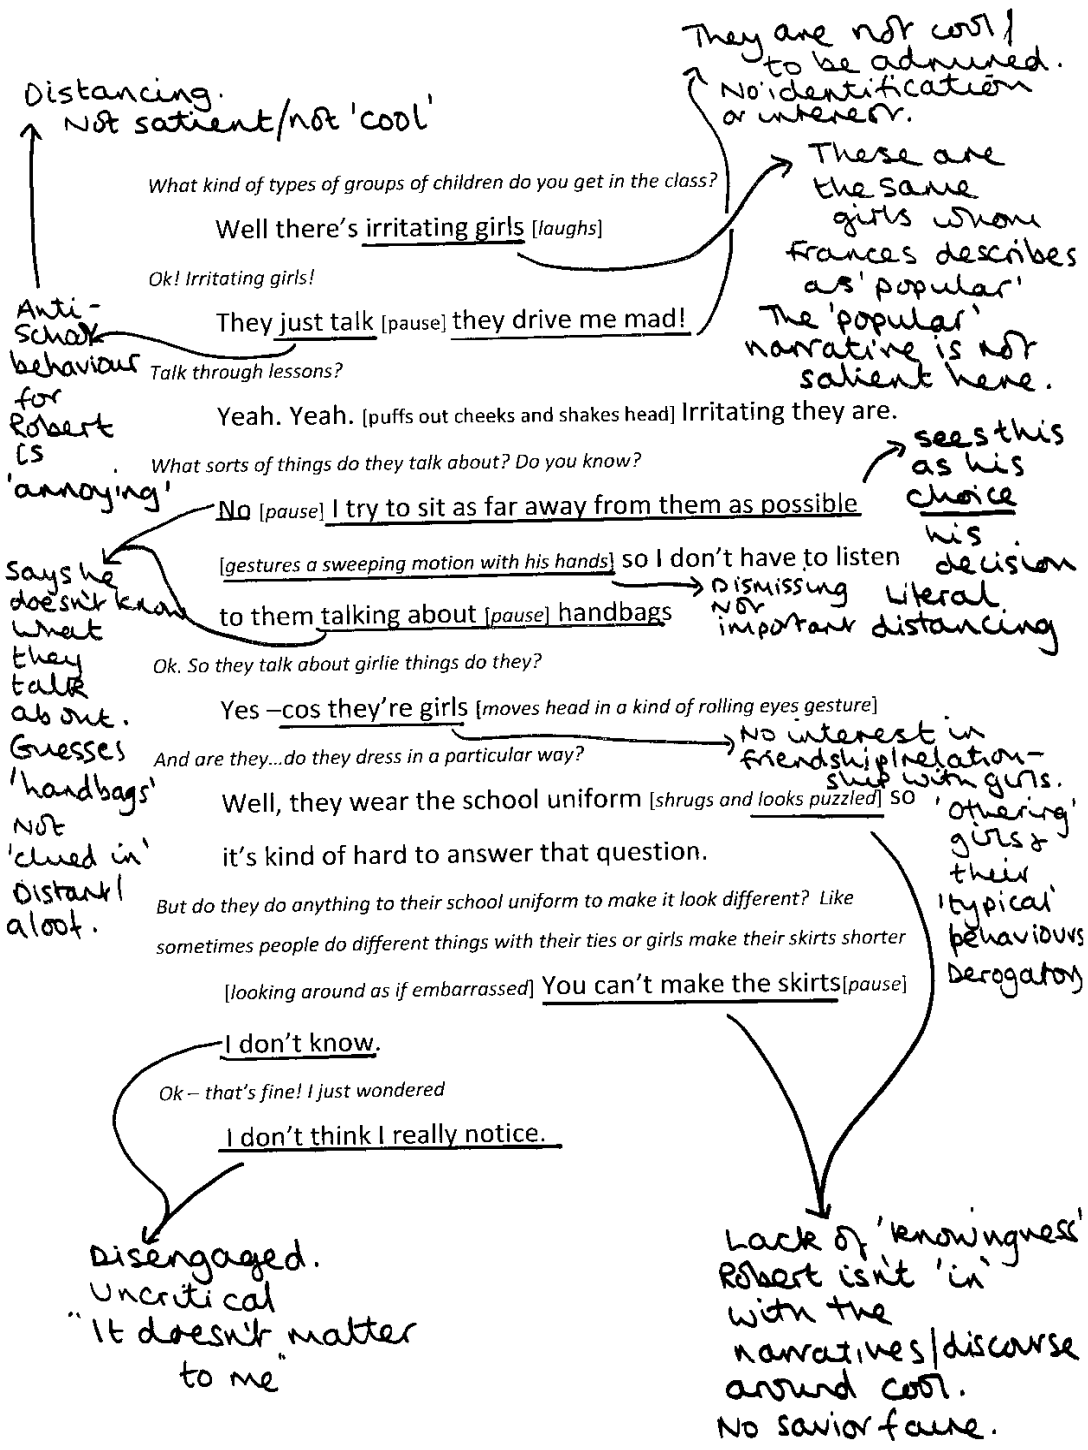 They are not cool/
to be admired.
No identification
or interest.
Distancing.
Not satient/not 'cool'
These are
the same
girls whom
Frances describes
as 'popular'
The 'popular'
narrative is not
salient here.
What kind of types of groups of children do you get in the class?
Well there's irritating girls [laughs]
Ok! Irritating girls!
They just talk [pause] they drive me mad!
Anti-
school
behaviour
for
Robert
is
'annoying'
Talk through lessons?
Yeah. Yeah. [puffs out cheeks and shakes head] Irritating they are.
What sorts of things do they talk about? Do you know?
No [pause] I try to sit as far away from them as possible
[gestures a sweeping motion with his hands] so I don't have to listen
to them talking about [pause] handbags
sees this
as his
choice
his
decision
Literal
distancing
Dismissing
Not
important
Says he
doesn't know
what
they
talk
about.
Guesses
'handbags'
Not
'clued in'
Distant/
aloof.
Ok. So they talk about girlie things do they?
Yes –cos they're girls [moves head in a kind of rolling eyes gesture]
And are they...do they dress in a particular way?
No interest in
friendship/relation-
ship with girls.
'Othering'
girls &
their
'typical'
behaviours
Derogatory
Well, they wear the school uniform [shrugs and looks puzzled] so
it's kind of hard to answer that question.
But do they do anything to their school uniform to make it look different? Like
sometimes people do different things with their ties or girls make their skirts shorter
[looking around as if embarrassed] You can't make the skirts[pause]
I don't know.
Ok – that's fine! I just wondered
I don't think I really notice.
Disengaged.
Uncritical
"It doesn't matter
to me"
Lack of 'knowingness'
Robert isn't 'in'
with the
narratives/discourse
around cool.
No savior faire.